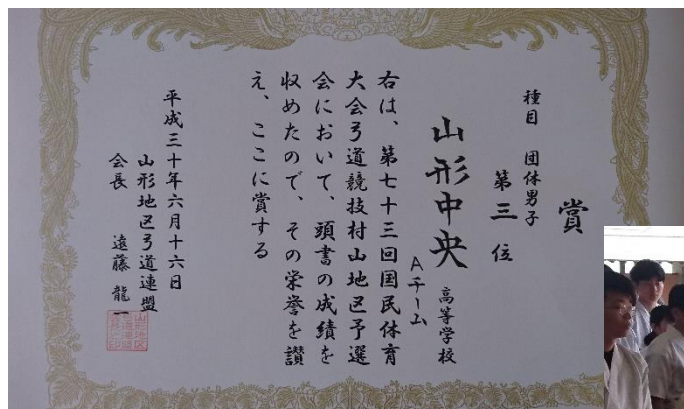 賞
種目 団体男子
第三位
山形中央高等学校
Aチーム
右は、第七十三回国民体育
大会弓道競技村山地区予選
会において、頭書の成績を
収めたので、その栄誉を讃
え、ここに賞する
平成三十年六月十六日
山形地区弓道連盟
会長 遠藤龍一